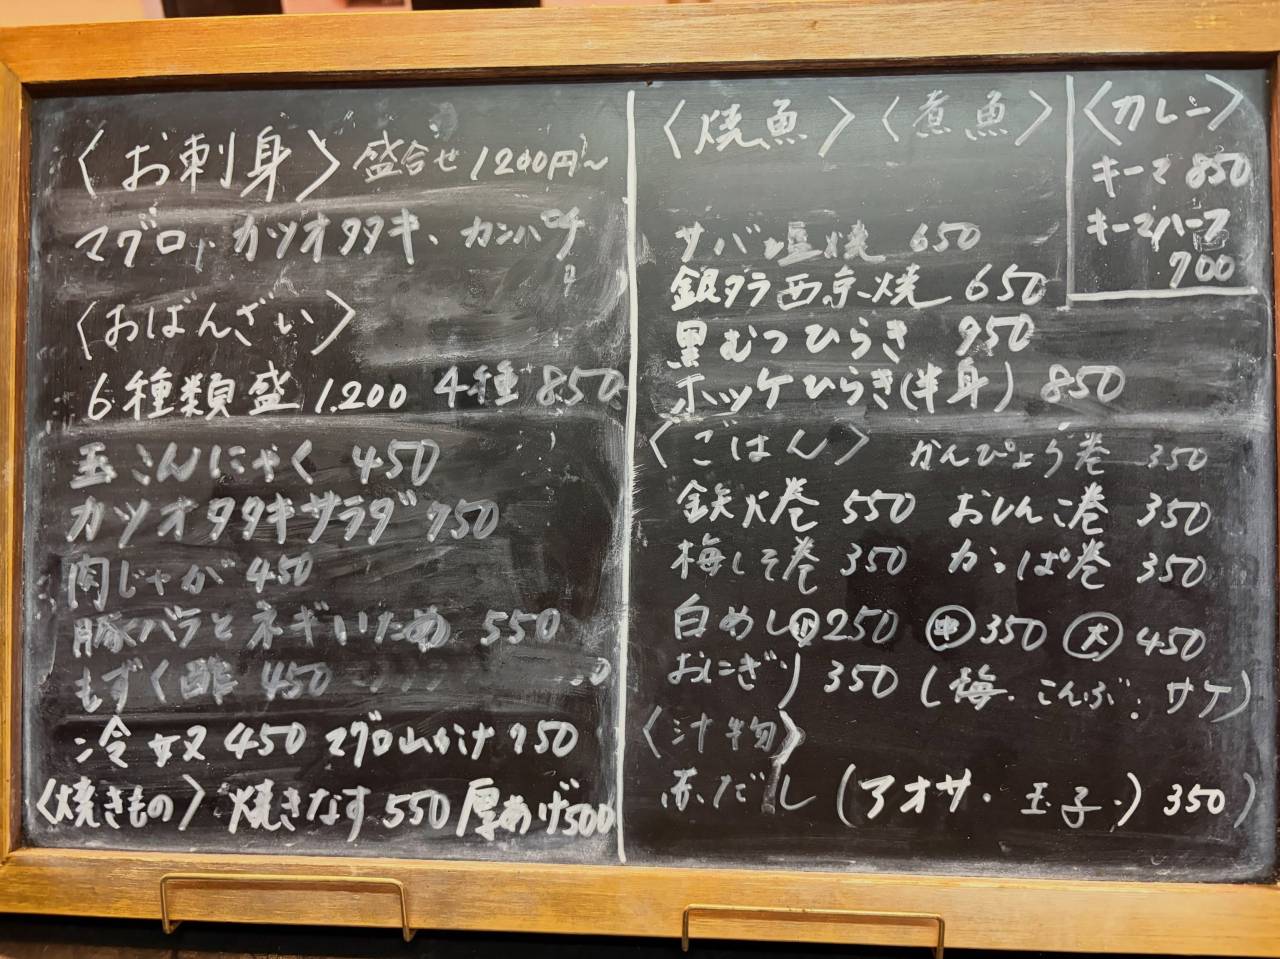 〈お刺身〉盛合せ 1200円〜
マグロ、カツオタタキ、カンパチ
〈おばんざい〉
6種類盛 1.200 4種 850
玉こんにゃく 450
カツオタタキサラダ 750
肉じゃが 450
豚バラとネギいため 550
もずく酢 450
冷ヤヌ 450 マグロ山かけ 750
〈焼きもの〉焼きなす 550 厚あげ500
〈焼魚〉〈煮魚〉
サバ塩焼 650
銀タラ西京焼 650
黒むつひらき 950
ホッケひらき(半身) 850
〈カレー〉
キーマ 850
キーマハーフ
700
〈ごはん〉 かんぴょう巻 350
鉄火巻 550 おしんこ巻 350
梅しそ巻 350 かっぱ巻 350
白めし㊙250 ㊥350 大 450
おにぎり 350 (梅・こんぶ・サケ)
〈汁物〉
赤だし (アオサ・玉子・) 350